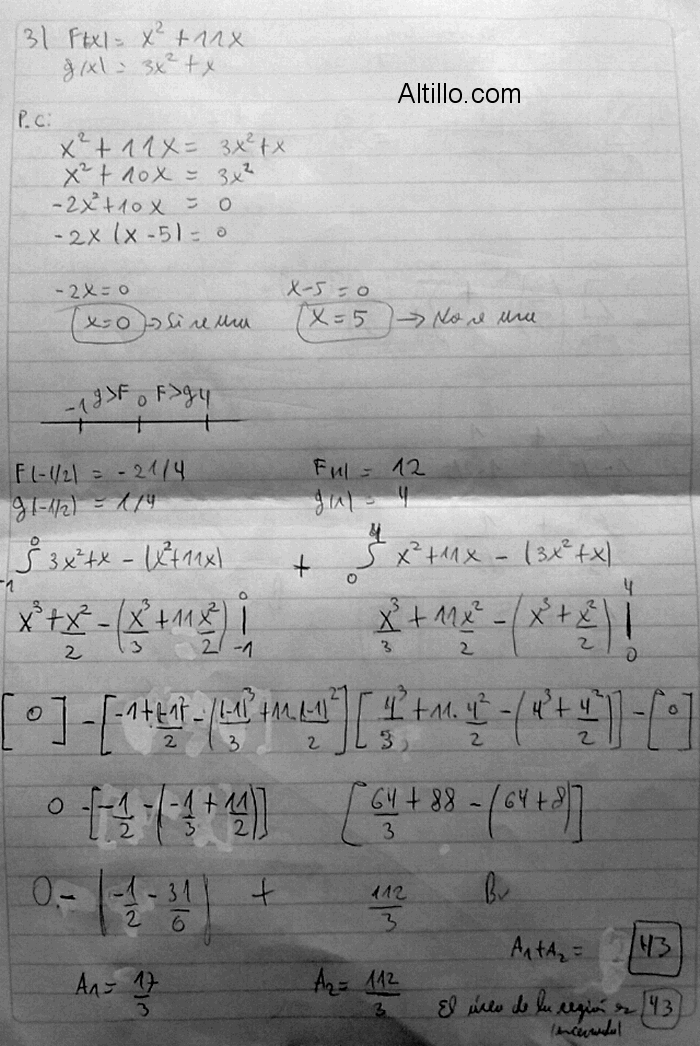 3) F(x) = x² + 11x
g(x) = 3x² + x
Altillo.com
P.C:
x² + 11x = 3x² + x
x² + 10x = 3x²
-2x² + 10x = 0
-2x (x - 5) = 0
-2x = 0 x - 5 = 0
x = 0 → Si x = 5 → No
-1 g>F 0 F>g 4
F(-1/2) = -21/4 F(1) = 12
g(-1/2) = 1/4 g(1) = 4
∫₋₁⁰ 3x² + x - (x² + 11x) + ∫₀⁴ x² + 11x - (3x² + x)
x³ + x²/2 - (x³/3 + 11x²/2) |₋₁⁰ x³/3 + 11x²/2 - (x³ + x²/2) |₀⁴
[0] - [-1 + (-1)²/2 - ((-1)³/3 + 11.(-1)²/2] [4³/3 + 11. 4²/2 - (4³ + 4²/2)] - [0]
0 - [-1/2 - (-1/3 + 11/2)] [64/3 + 88 - (64 + 8)]
0 - (-1/2 - 31/6) + 112/3 B
A1 + A2 = 43
A1 = 17/3 A2 = 112/3
El área de la región es 43
(encerrada)